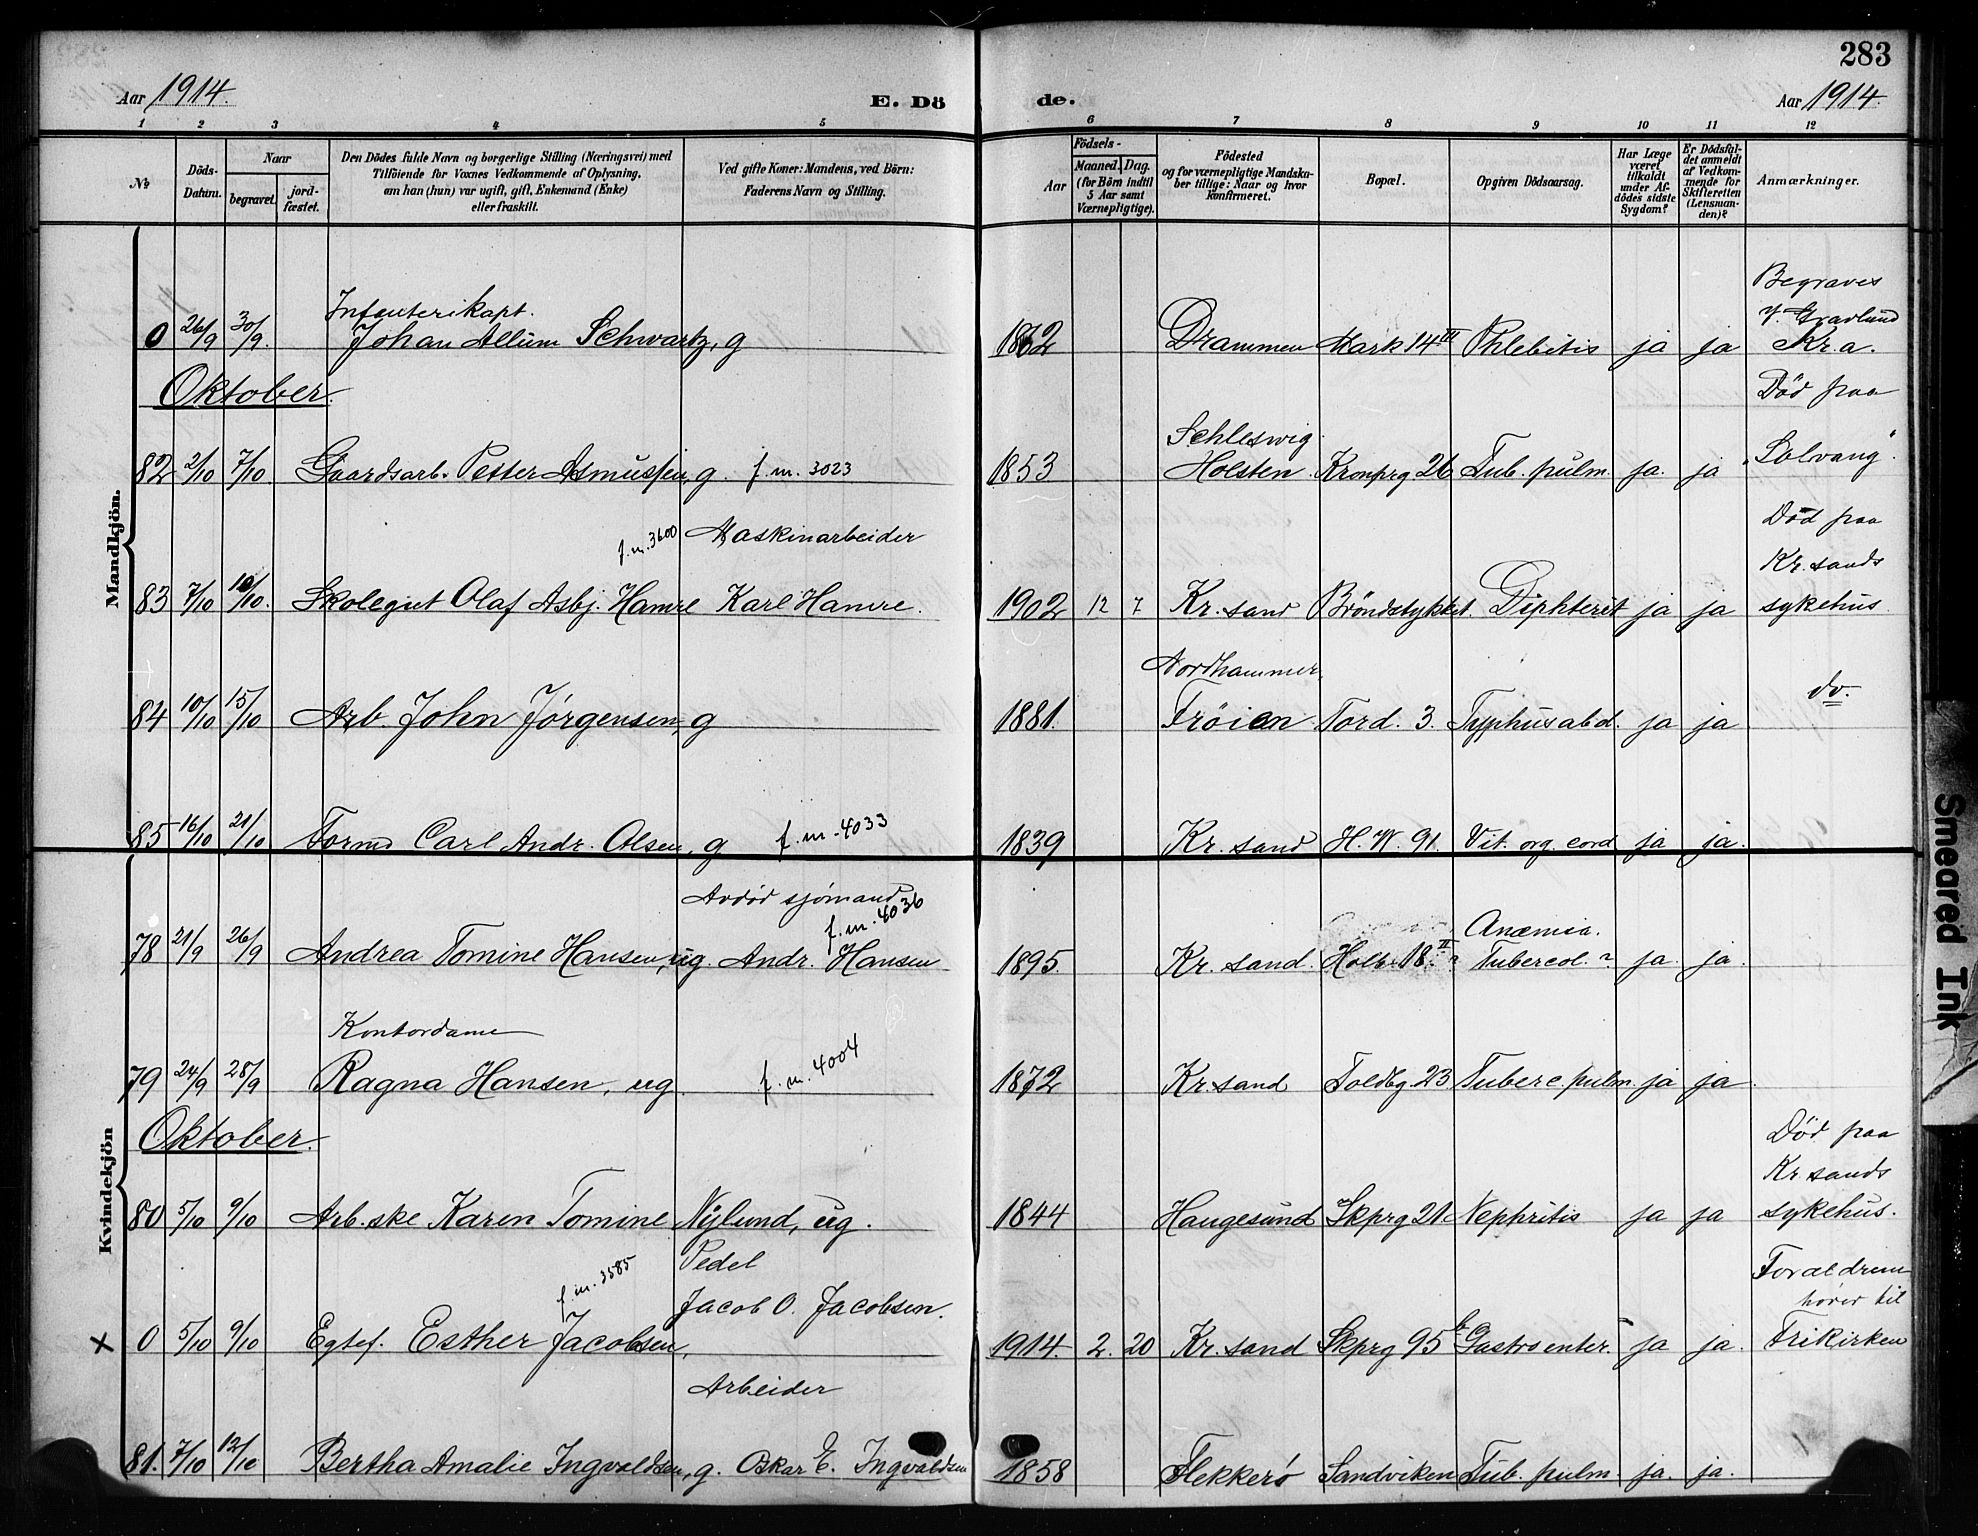 283
Aar 1914.
E. Dö
de.
Aar 1914.
1 2 3 4 5 6 7 8 9 10 11 12
No
Döds-
Datum.
Naar
begravet.
jord-
fæstet.
Den Dödes fulde Navn og borgerlige Stilling (Næringsvei) med
Tilföiende for Voxnes Vedkommende af Oplysning,
om han (hun) var ugift, gift, Enkemand (Enke)
eller fraskilt.
Ved gifte Koner: Mandens, ved Börn:
Faderens Navn og Stilling.
Födsels-
Aar
Maaned. Dag.
(for Börn indtil
5 Aar samt
Værnepligtige).
Födested
og for værnepligtige Mandska-
ber tillige: Naar og hvor
konfirmeret.
Bopæl.
Opgiven Dödsaarsag.
Har Læge
været
tilkaldt
under Af-
dödes sidste
Sygdom?
Er Dödsfal-
det anmeldt
af Vedkom-
mende for
Skifteretten
(Lensman-
den)?
Anmærkninger.
Mandkjön.
Begraves
V. Gravlund
Infanterikapt.
0 26/9 30/9 Johan Allum Schwartz, g 1862 Drammen Mark 14 III Phlebitis ja ja Kr.a.
Oktober.
Död paa
Schleswig
82 2/10 7/10 Gaardsarb. Petter Asmussen, g. f.m. 3023 1853 Holsten Kronprg 26 Tub. pulm. ja. ja "Solvang".
f.m. 3600 Maskinarbeider
Död paa
Kr.sands
83 7/10 10/10. Skolegut Olaf Asbj. Hamre Karl Hamre. 1902 12 7 Kr. sand Bröndstykket. Diphterit ja ja sykehus
Nordhammer,
84 10/10 15/10 Arb. John Jörgensen, g 1881. Fröien Tord. 3. Typhus abd. ja ja do.
85 16/10 21/10 Formd Carl Andr. Olsen, g f.m. 4033 1839 Kr. sand H.W. 91. Vit. org. cord ja ja.
Kvindekjön
Avdöd sjömand
f.m. 4036
Anæmia.
78 21/9 26/9 Andrea Tomine Hansen, ug. Andr. Hansen 1895. Kr. sand. Holb. 18 II Tubercol. ? ja. ja.
Kontordame
79 24/9 28/9 Ragna Hansen, ug. f.m. 4004 1872 Kr. sand Toldbg. 23 Tuberc. pulm. ja ja.
Oktober.
Död paa
Kr.sands
80 5/10 9/10 Arb.ske Karen Tomine Nylund, ug. 1844 Haugesund Skprg 21 Nephritis ja ja sykehus.
f.m. 3585
Pedel
Jacob O. Jacobsen.
Foraeldrene
hörer til
x 0 5/10 9/10 Egtef. Esther Jacobsen, 1914. 2. 20 Kr. sand Skprg 95 Gastroenter. ja ja. Frikirken
Arbeider
81. 7/10 12/10 Bertha Amalie Ingvaldsen, g. Oskar E. Ingvaldsen 1858 Flekkerö Sandviken Tub. pulm ja. ja.
Smeared Ink